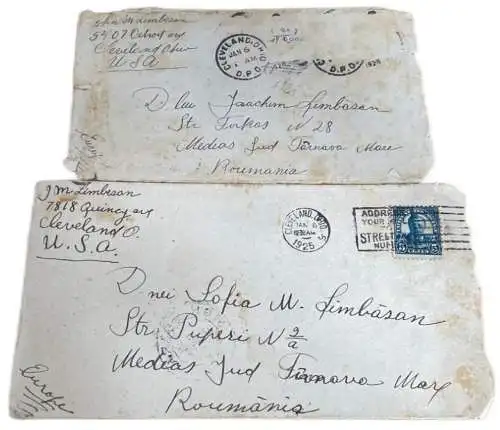 John M Limbasan
5407 Detroit ave
Cleveland Ohio
U.S.A
CLEVELAND, OHIO
JAN 6
AM
D.P.O.
D.P.O.
1925
D lui Joachim Limbasan
Str N 28
Medias Jud Târnava Mare
Roumania
J M Limbasan
7818 Quincy ave
Cleveland O
U.S.A.
CLEVELAND, OHIO
JAN 6
1925
ADDRESS
YOUR
STREET
5 CENTS 5
Dnei Sofia M. Limbăsan
Str Puperi N 2/a
Medias Jud Târnava Mare
Roumănia
Europe